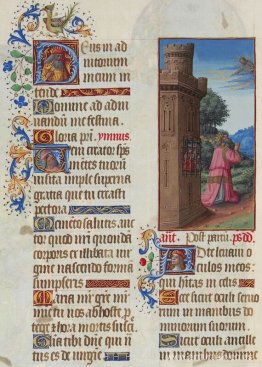 Eus in ad
iutorium
meum in
tende
Domine ad adiu
uandū me festina
Gloria pri. ymnus.
Eni creator sps
mētes tuorū
uisita imple superna
gratia que tu creasti
pectora
Memēto salutis auc
tor quod nr̄i quondā
corporis ex illibata uir
gine nascendo formā
sumpseris
Maria mr̄ gr̄e mr̄
mie tu nos ab hoste p
tege & hora mortis suscipe
Glia tibi dn̄e qui na
tus es de uirgīe
ant. Post partū. ps. Dd.
Ad te leuaui o
culos meos:
qui hitas in celis
Ecce sicut oculi seruo
rum in manibus do
minorum suorum.
Sicut oculi ancille
in manibus domine